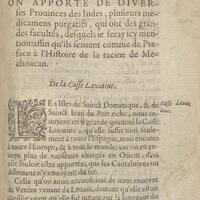 ON APPORTE DE DIVER-
ses Prouinces des Indes, plusieurs me-
dicamens purgatifs, qui ont des gran-
des facultés, desquels ie feray icy men-
tion afin qu'ils seruent comme de Pre-
face à l'Histoire de la racine de Me-
choacan.
De la Casse Laxatiue.
LEs Isles de Sainct Dominique, & de
Sainct Iean du Port riche, nous en-
uoyent en grande quantité la Casse
Laxatiue, qu'elle suffit non seule-
ment à toute l'Espagne, mais encore
à toute l'Europe, & à tout le monde: car on en-
uoye plus de vaisseaux chargés en Orient,
elle souloit estre apportée, que les Cantabriens ou
n'y enuoyent du fer.
Celle qu'on auoit accoustumé de nous enuoyer
de Venize venant de Leuant, duroit qu'elle estoit